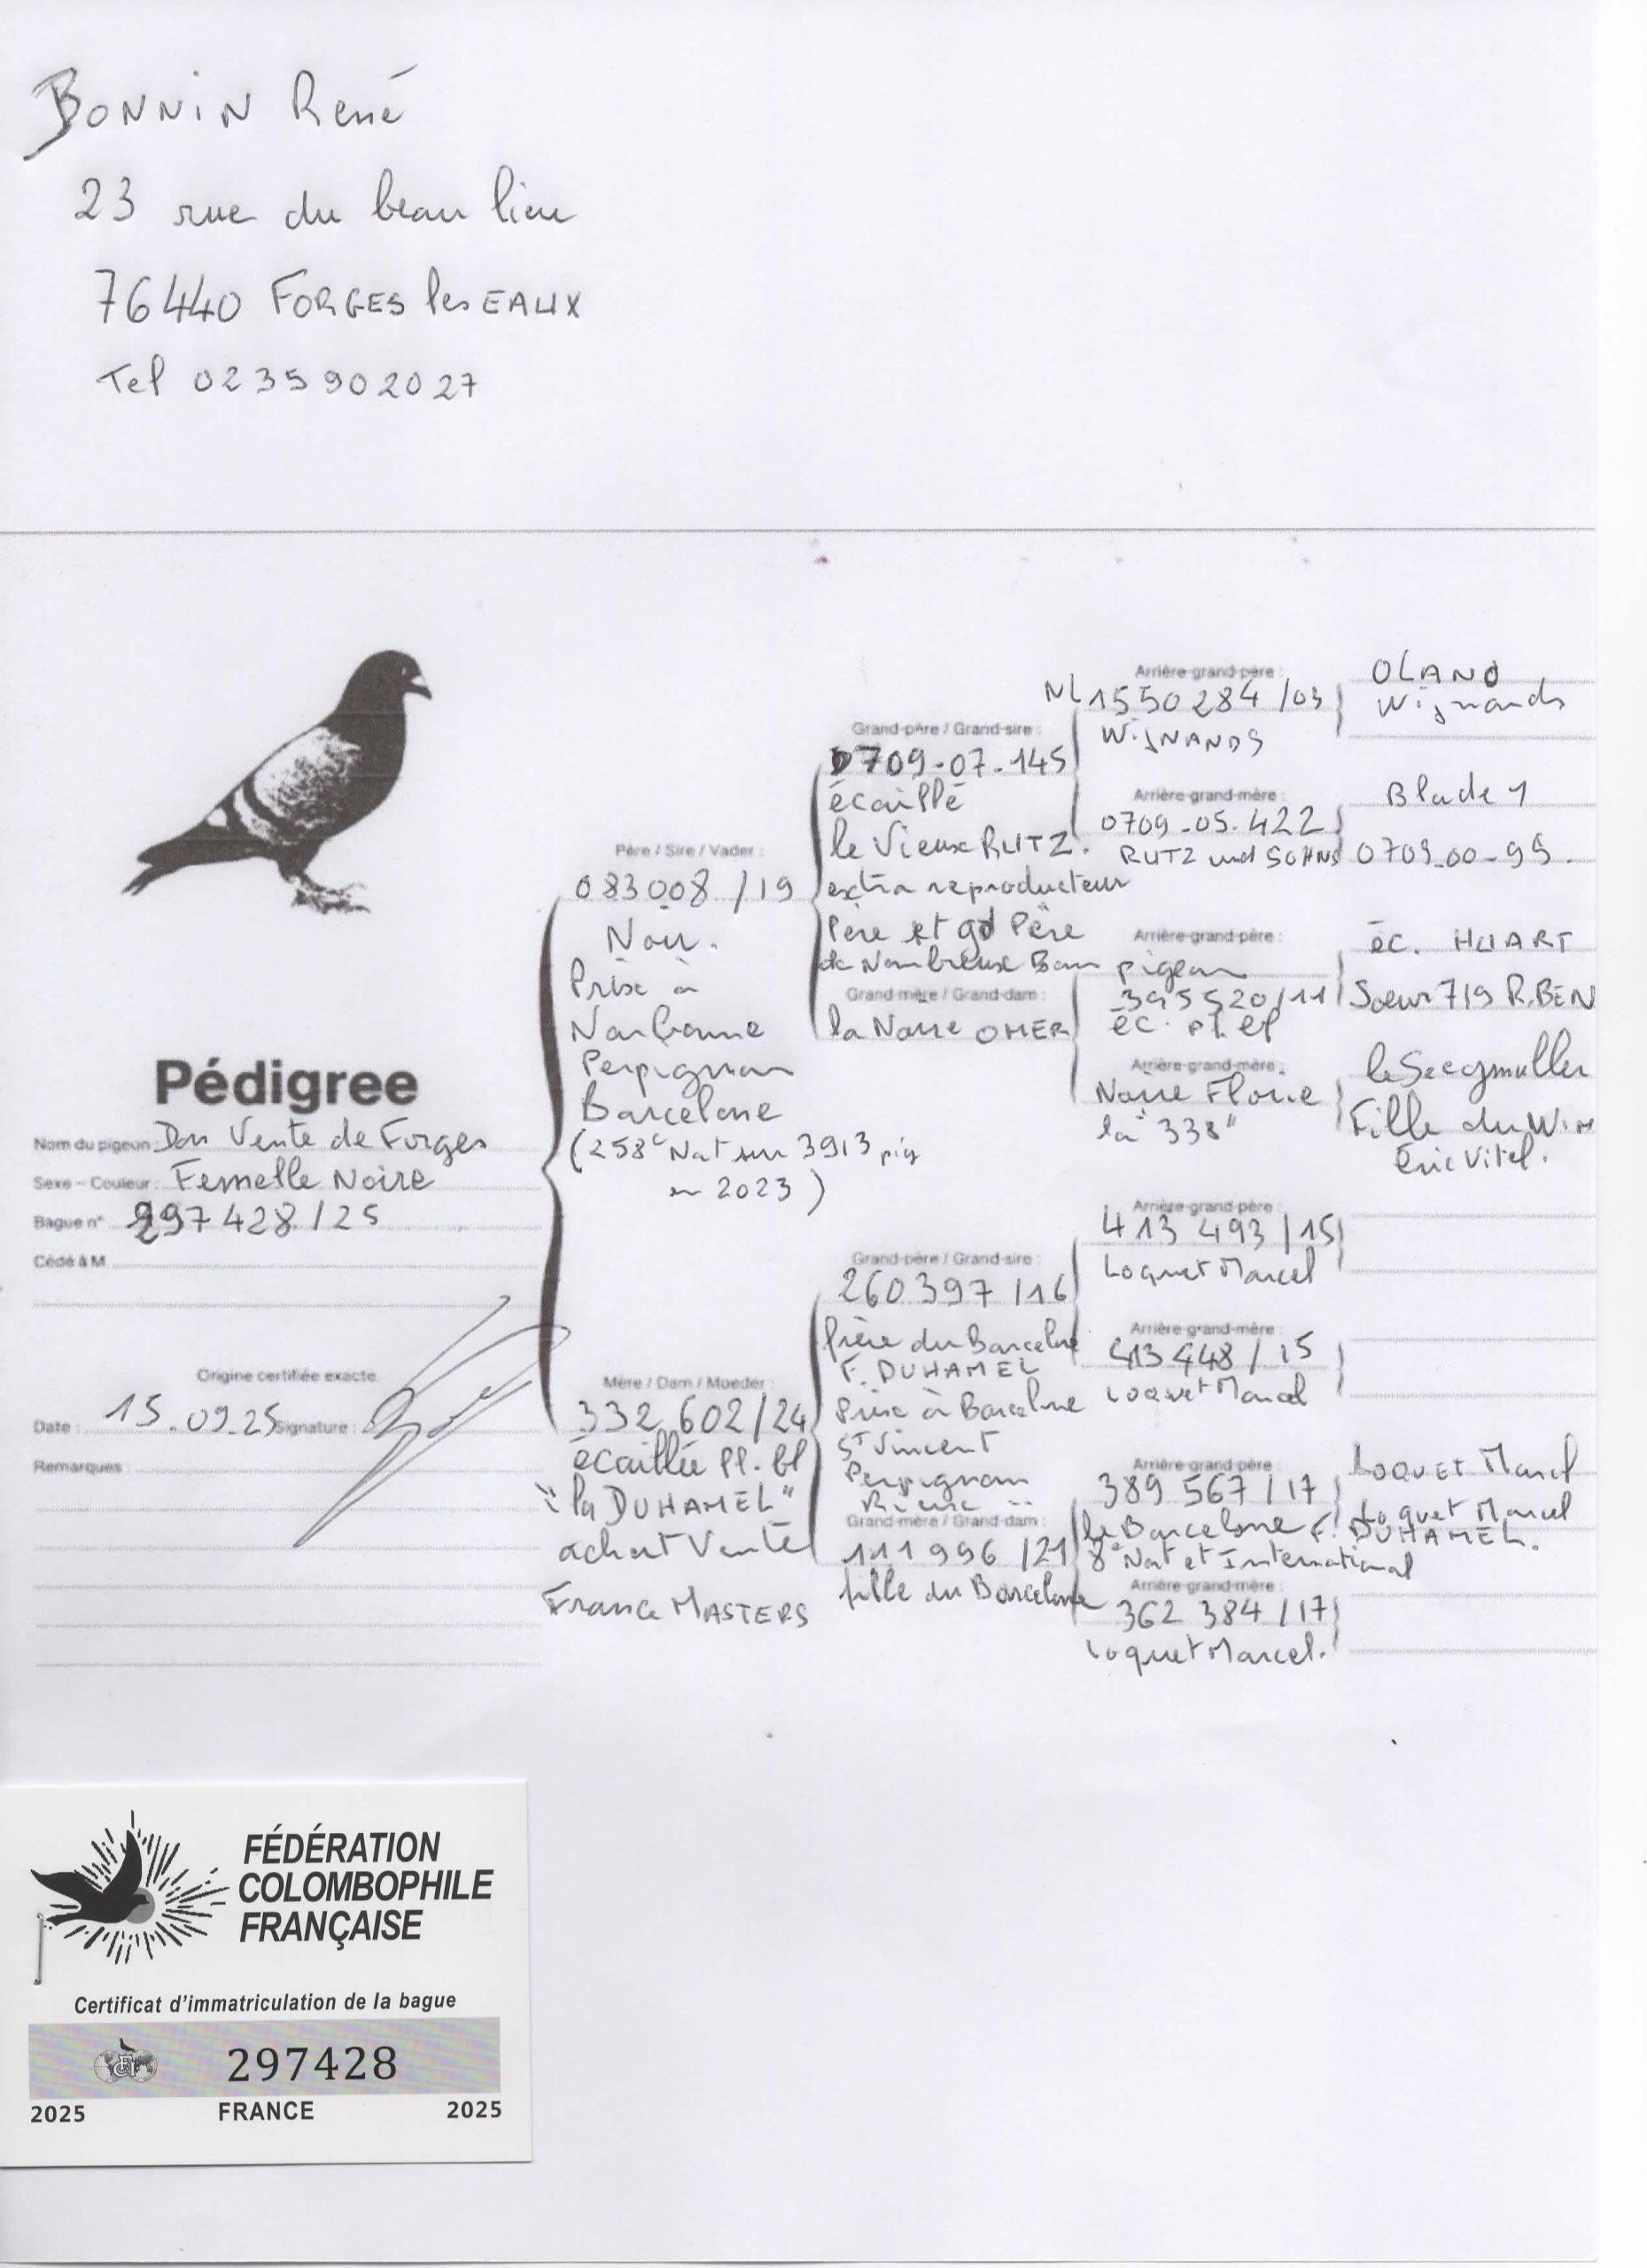 BONNIN René
23 rue du beau lieu
76440 FORGES les EAUX
Tel 0235902027
Pédigree
Nom du pigeon : Don Vente de Forges
Sexe – Couleur : Femelle Noire
Bague n° 297428/25
Cédé à M.
Origine certifiée exacte.
Date : 15.09.25 Signature :
Remarques :
Père / Sire / Vader :
083008 /19
Noir.
Prix à
Narbonne
Perpignan
Barcelone
(258e Nat sur 3913 pig
en 2023 )
Mère / Dam / Moeder :
332 602/24
écaillée Pl. bl
"la DUHAMEL"
achat Vente
France MASTERS
Grand-père / Grand-sire :
0709-07-145
écaillé
le Vieux RUTZ.
extra reproducteur
Père et gd Père
de Nombreux Bon pigeon
Grand-mère / Grand-dam :
la Noire OMER
Grand-père / Grand-sire :
260397 /16
frère du Barcelone
F. DUHAMEL
Prix à Barcelone
St Vincent
Perpignan
Grand-mère / Grand-dam :
111996 /21
fille du Barcelone
Arrière-grand-père :
NL 1550284 /03
WIJNANDS
Arrière-grand-mère :
0709-05-422
RUTZ und SOHNS
Arrière-grand-père :
395520/11
éc. pl. ef
Arrière-grand-mère :
Noire Florie
la "338"
Arrière-grand-père :
413 493 /15
Loquet Marcel
Arrière-grand-mère :
413448 / 15
Loquet Marcel
Arrière-grand-père :
389 567 /17
le Barcelone F. DUHAMEL.
8e Nat et International
Arrière-grand-mère :
362 384 /17
Loquet Marcel.
OLAND
Wijnands
Blade 1
0709-00-99.
éc. HUART
Soeur 719 R.BEN
le Seegmuller
Fille du
Eric Vitel.
LOQUET Marcel
Loquet Marcel
FÉDÉRATION
COLOMBOPHILE
FRANÇAISE
Certificat d'immatriculation de la bague
297428
2025 FRANCE 2025